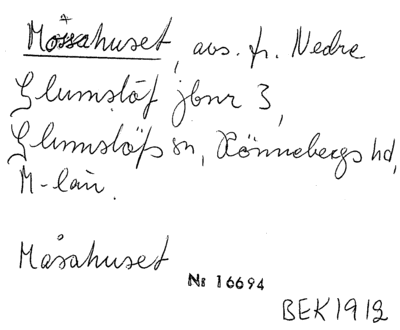 Mossahuset, avs. fr. Nedre
Glumslöf jbnr 3,
Glumslöfs sn, Rönnebergs hd,
M-län.
Måsahuset
Nr 16694
BEK 1912